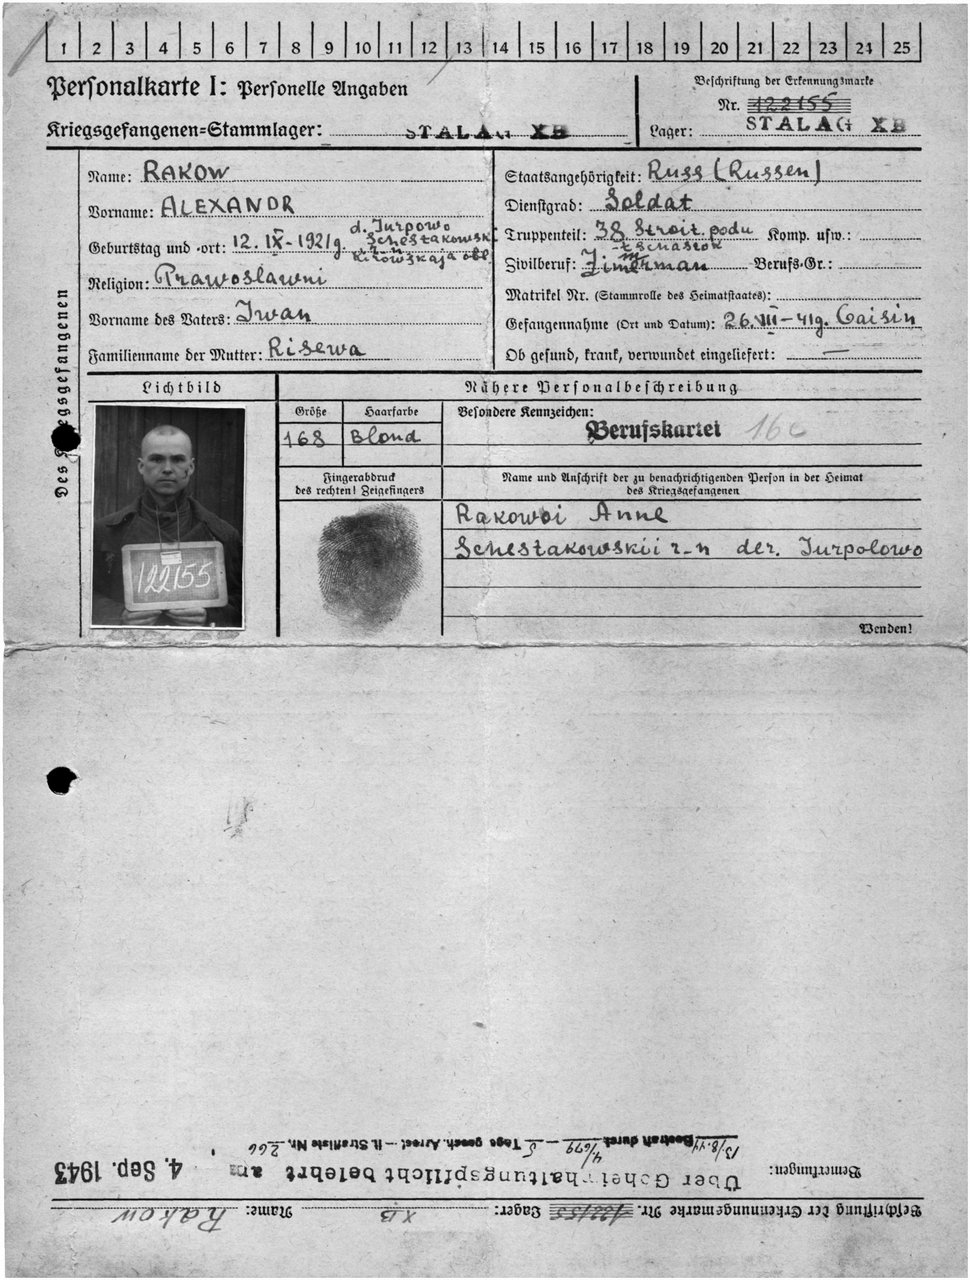 1 2 3 4 5 6 7 8 9 10 11 12 13 14 15 16 17 18 19 20 21 22 23 24 25
Personalkarte I: Personelle Angaben
Kriegsgefangenen=Stammlager: STALAG XB
Beschriftung der Erkennungsmarke
Nr. 122155
Lager: STALAG XB
Des Kriegsgefangenen
Name: RAKOW
Vorname: ALEXANDR
Geburtstag und -ort: 12. IX-1921g. d. Jurpowo
Schestakowski
r-n
Kirowskaja obl
Religion: Prawoslawni
Vorname des Vaters: Iwan
Familienname der Mutter: Risewa
Staatsangehörigkeit: Russ (Russen)
Dienstgrad: Soldat
Truppenteil: 38 Stroit. podu Komp. usw.:
tschastok
Zivilberuf: Zimerman Berufs-Gr.:
Matrikel Nr. (Stammrolle des Heimatstaates):
Gefangennahme (Ort und Datum): 26.VIII-41g. Gaisin
Ob gesund, krank, verwundet eingeliefert: —
Lichtbild
122155
Nähere Personalbeschreibung
Größe
168
Haarfarbe
Blond
Besondere Kennzeichen:
Berufskartei 166
Fingerabdruck
des rechten! Zeigefingers
Name und Anschrift der zu benachrichtigenden Person in der Heimat
des Kriegsgefangenen
Rakowoi Anne
Schestakowskii r-n der. Jurpolowo
Wenden!
Beschriftung der Erkennungsmarke Nr. 122155 Lager: XB Name: Rakow
Bemerkungen:
Über Geheimhaltungspflicht belehrt am 4. Sep. 1943
13/8.44 Bestraft durch 4/679 — 5 Tage gesch. Arrest — lt. Strafliste Nr. 266